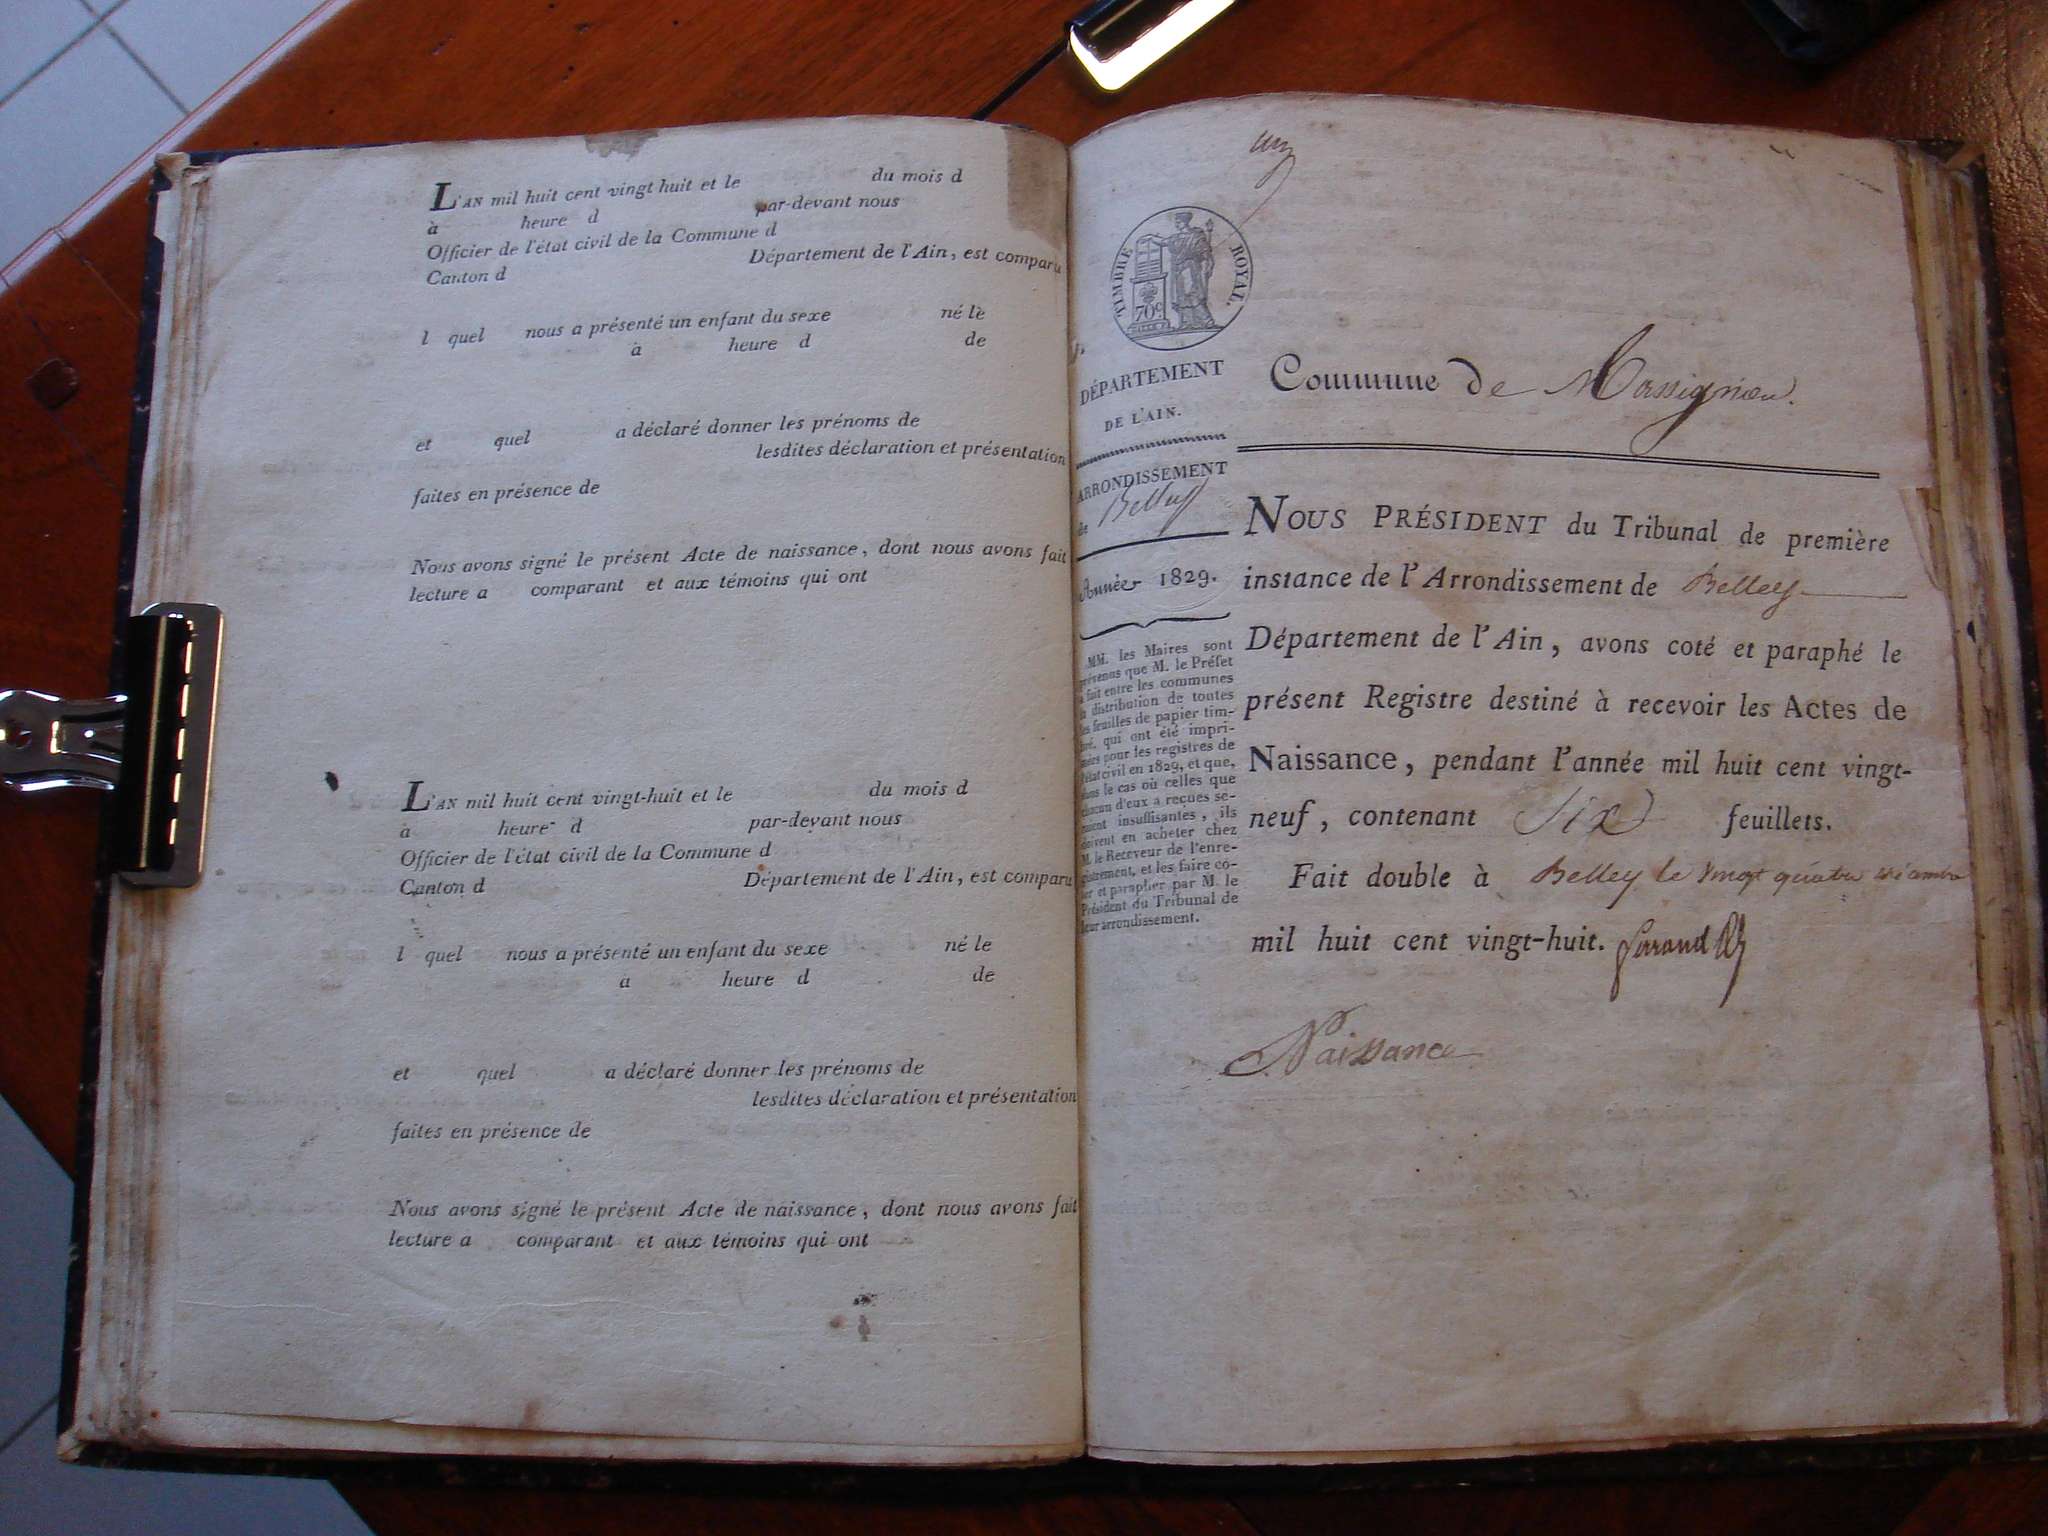 L'AN mil huit cent vingt huit et le du mois d
à heure d par-devant nous
Officier de l'état civil de la Commune d
Canton d Département de l'Ain, est comparu
l quel nous a présenté un enfant du sexe né le
à heure d de
et quel a déclaré donner les prénoms de
lesdites déclaration et présentation
faites en présence de
Nous avons signé le présent Acte de naissance, dont nous avons fait
lecture a comparant et aux témoins qui ont
L'AN mil huit cent vingt-huit et le du mois d
à heure d par-devant nous
Officier de l'état civil de la Commune d
Canton d Département de l'Ain, est comparu
l quel nous a présenté un enfant du sexe né le
à heure d de
et quel a déclaré donner les prénoms de
lesdites déclaration et présentation
faites en présence de
Nous avons signé le présent Acte de naissance, dont nous avons fait
lecture a comparant et aux témoins qui ont
un
TIMBRE ROYAL.
70c
DÉPARTEMENT
DE L'AIN.
ARRONDISSEMENT
de Belley
Année 1829.
MM. les Maires sont
prévenus que M. le Préfet
a fait entre les communes
la distribution de toutes
les feuilles de papier tim-
bré, qui ont été impri-
mées pour les registres de
l'état civil en 1829, et que,
dans le cas où celles que
chacun d'eux a reçues se-
raient insuffisantes, ils
doivent en acheter chez
M. le Receveur de l'enre-
gistrement, et les faire co-
ter et parapher par M. le
Président du Tribunal de
leur arrondissement.
Commune de Massignieu.
NOUS PRÉSIDENT du Tribunal de première
instance de l'Arrondissement de Belley
Département de l'Ain, avons coté et paraphé le
présent Registre destiné à recevoir les Actes de
Naissance, pendant l'année mil huit cent vingt-
neuf, contenant Six feuillets.
Fait double à Belley le vingt quatre décembre
mil huit cent vingt-huit.
Naissance